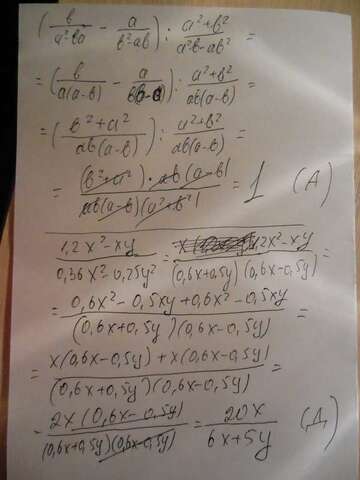 (в/(a²-вa) - a/(в²-aв)) : (a²+в²)/(a²в-aв²) =
= (в/(a(a-в)) - a/(в(в-a))) : (a²+в²)/(aв(a-в)) =
= ((в²+a²)/(aв(a-в))) : (a²+в²)/(aв(a-в)) =
= ((в²+a²)·aв(a-в))/(aв(a-в)(a²+в²)) = 1 (A)
(1,2x²-xy)/(0,36x²-0,25y²) = (1,2x²-xy)/((0,6x+0,5y)(0,6x-0,5y)) =
= (0,6x²-0,5xy+0,6x²-0,5xy)/((0,6x+0,5y)(0,6x-0,5y)) =
= (x(0,6x-0,5y)+x(0,6x-0,5y))/((0,6x+0,5y)(0,6x-0,5y)) =
= (2x(0,6x-0,5y))/((0,6x+0,5y)(0,6x-0,5y)) = 20x/(6x+5y) (Д)